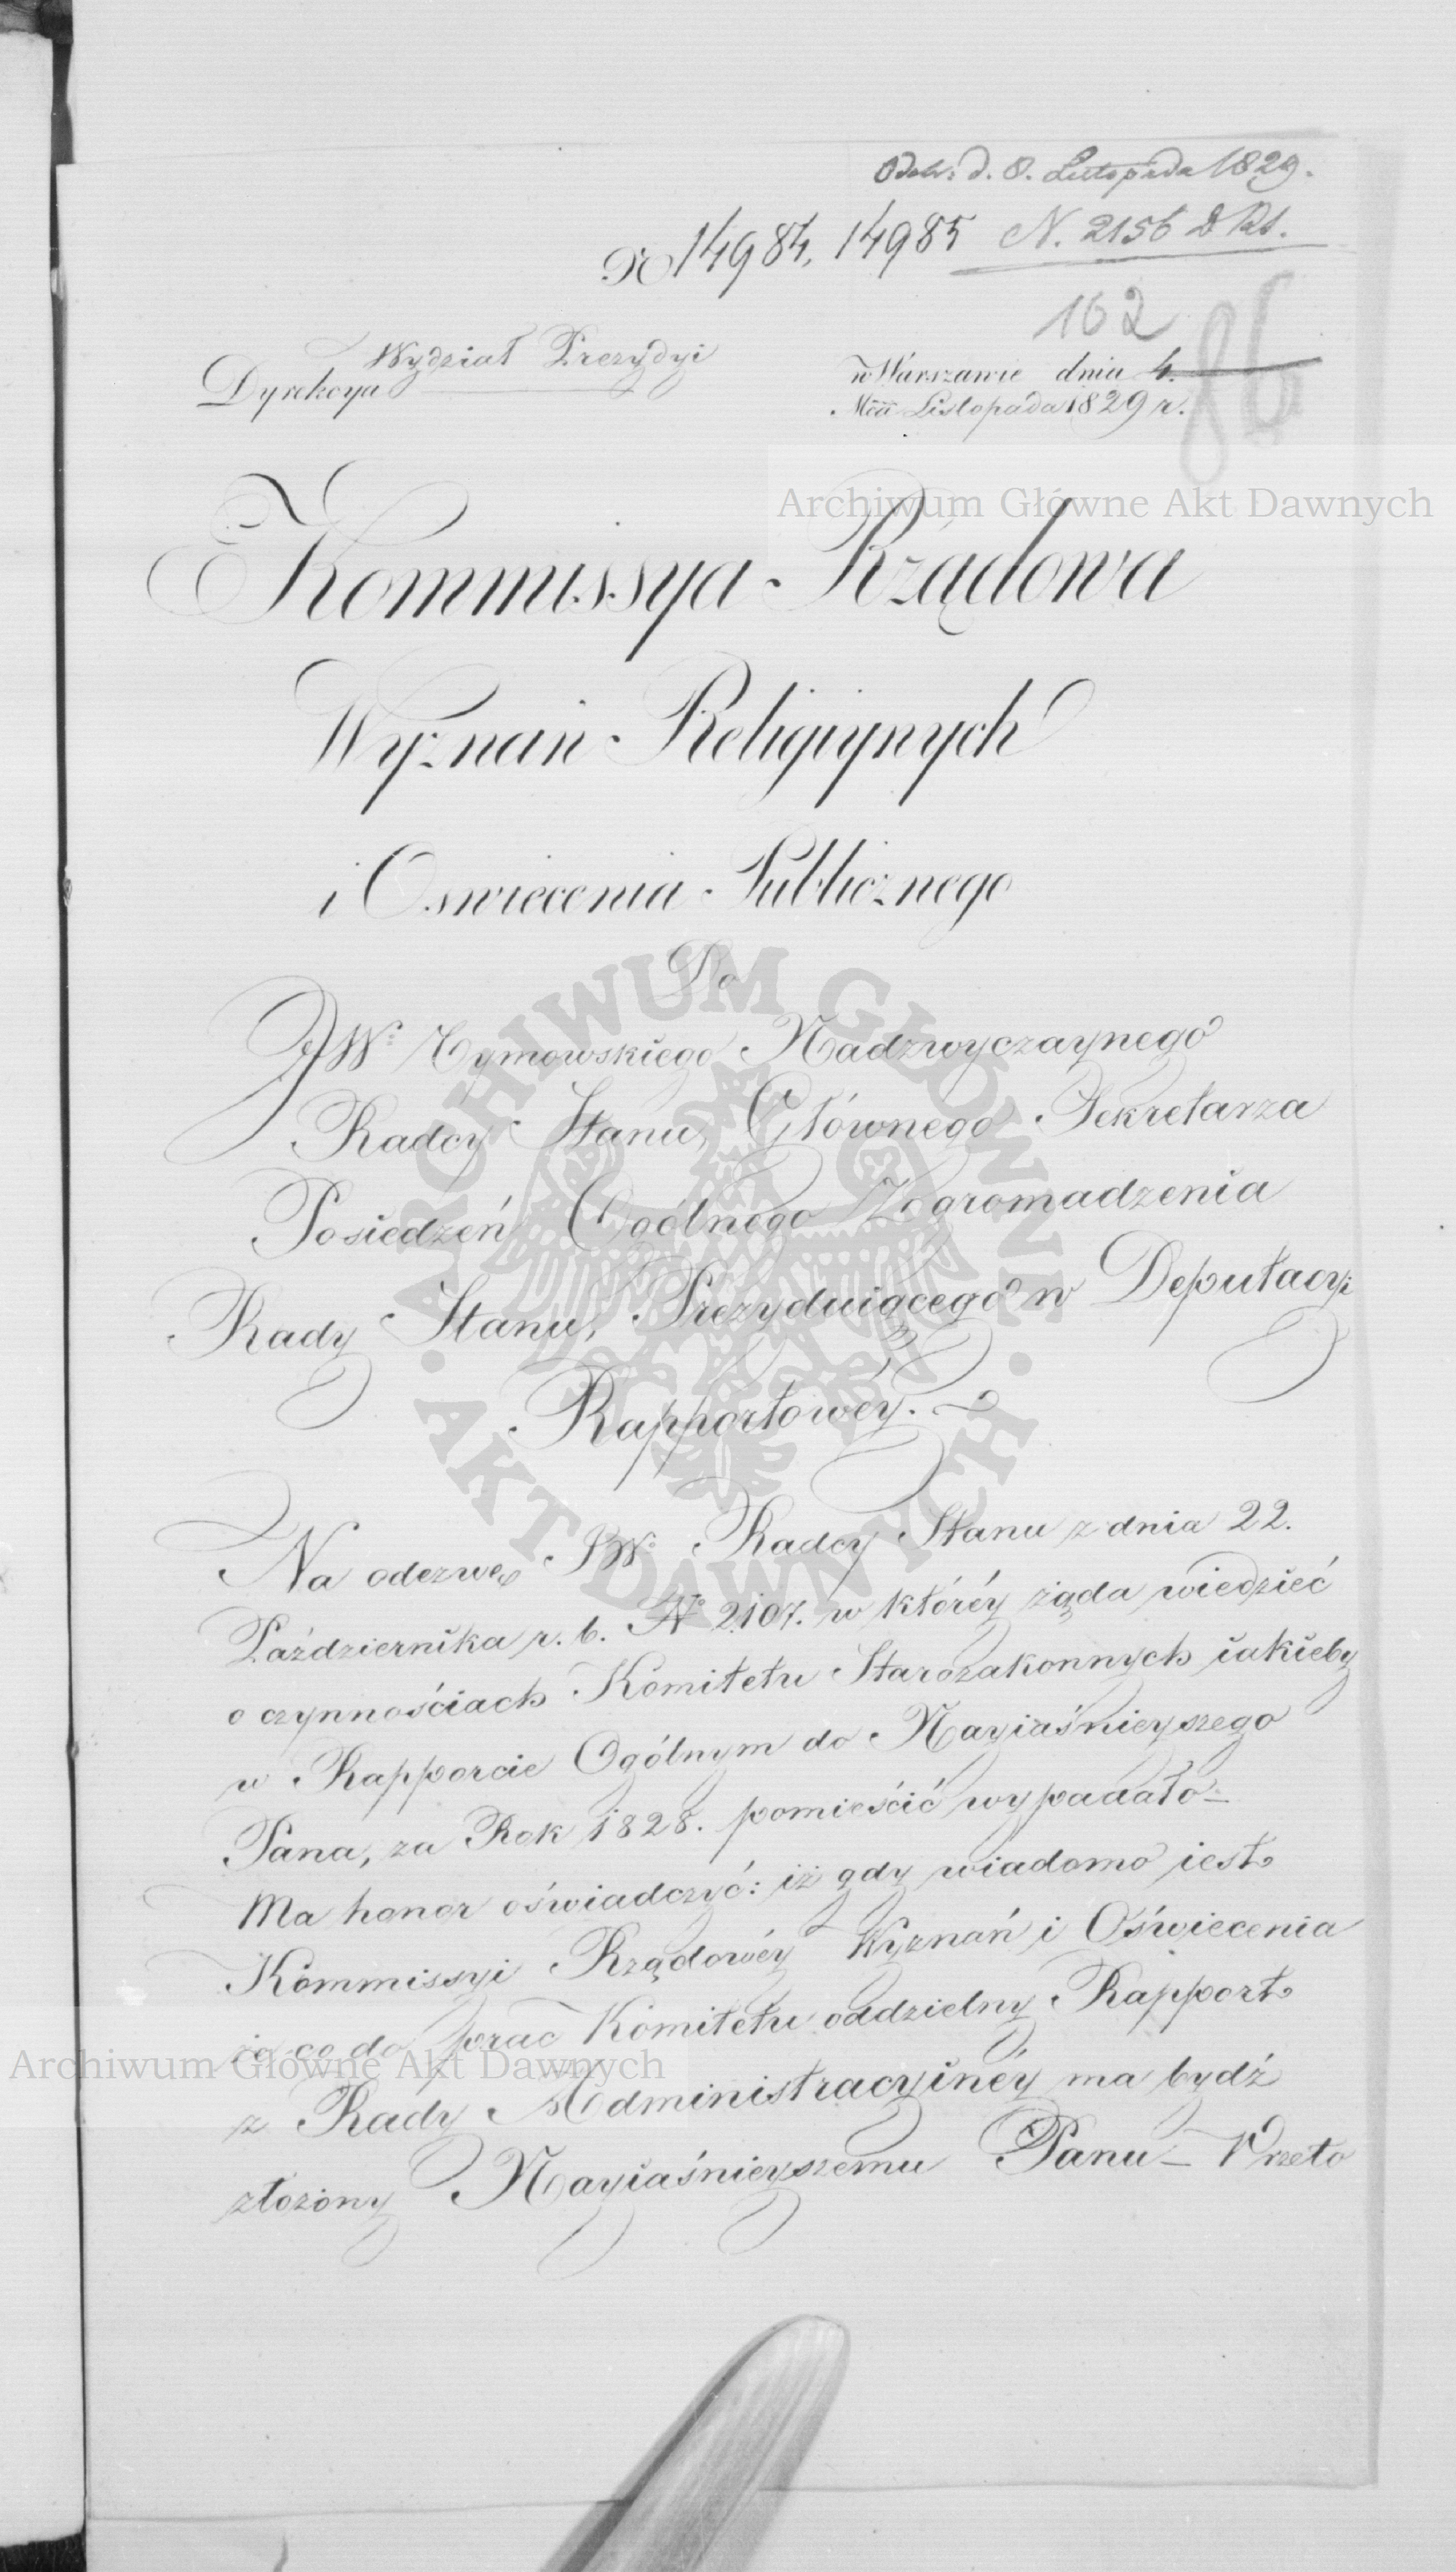 Odeb: d. 8. Listopada 1829.
No 14984, 14985 N. 2156 D Rt.
162
86
Wydział Prezydyi
Dyrekcya
w Warszawie dnia 4.
Mca Listopada 1829 r.
Archiwum Główne Akt Dawnych
Kommissya Rządowa
Wyznań Religiynych
i Oswiecenia Publicznego
Do
JW: Tymowskiego Nadzwyczaynego
Radcy Stanu, Głównego Sekretarza
Posiedzeń Ogólnego Zgromadzenia
Rady Stanu, Prezyduiącego w Deputacyi
Rapportowéy.
ARCHIWUM GŁÓWNE · AKT DAWNYCH ·
Na odezwę JW: Radcy Stanu z dnia 22.
Października r. b. No 2107. w któréy żąda wiedzieć
o czynnościach Komitetu Starozakonnych iakieby
w Rapporcie Ogólnym do Nayiaśnieyszego
Pana, za Rok 1828. pomieścić wypadało –
Ma honor oświadczyć: iż gdy wiadomo iest
Kommissyi Rządowéy Wyznań i Oświecenia
że co do prac Komitetu oddzielny Rapport
Archiwum Główne Akt Dawnych
z Rady Administracyinéy ma bydź
złożony Nayiaśnieyszemu Panu – Przeto